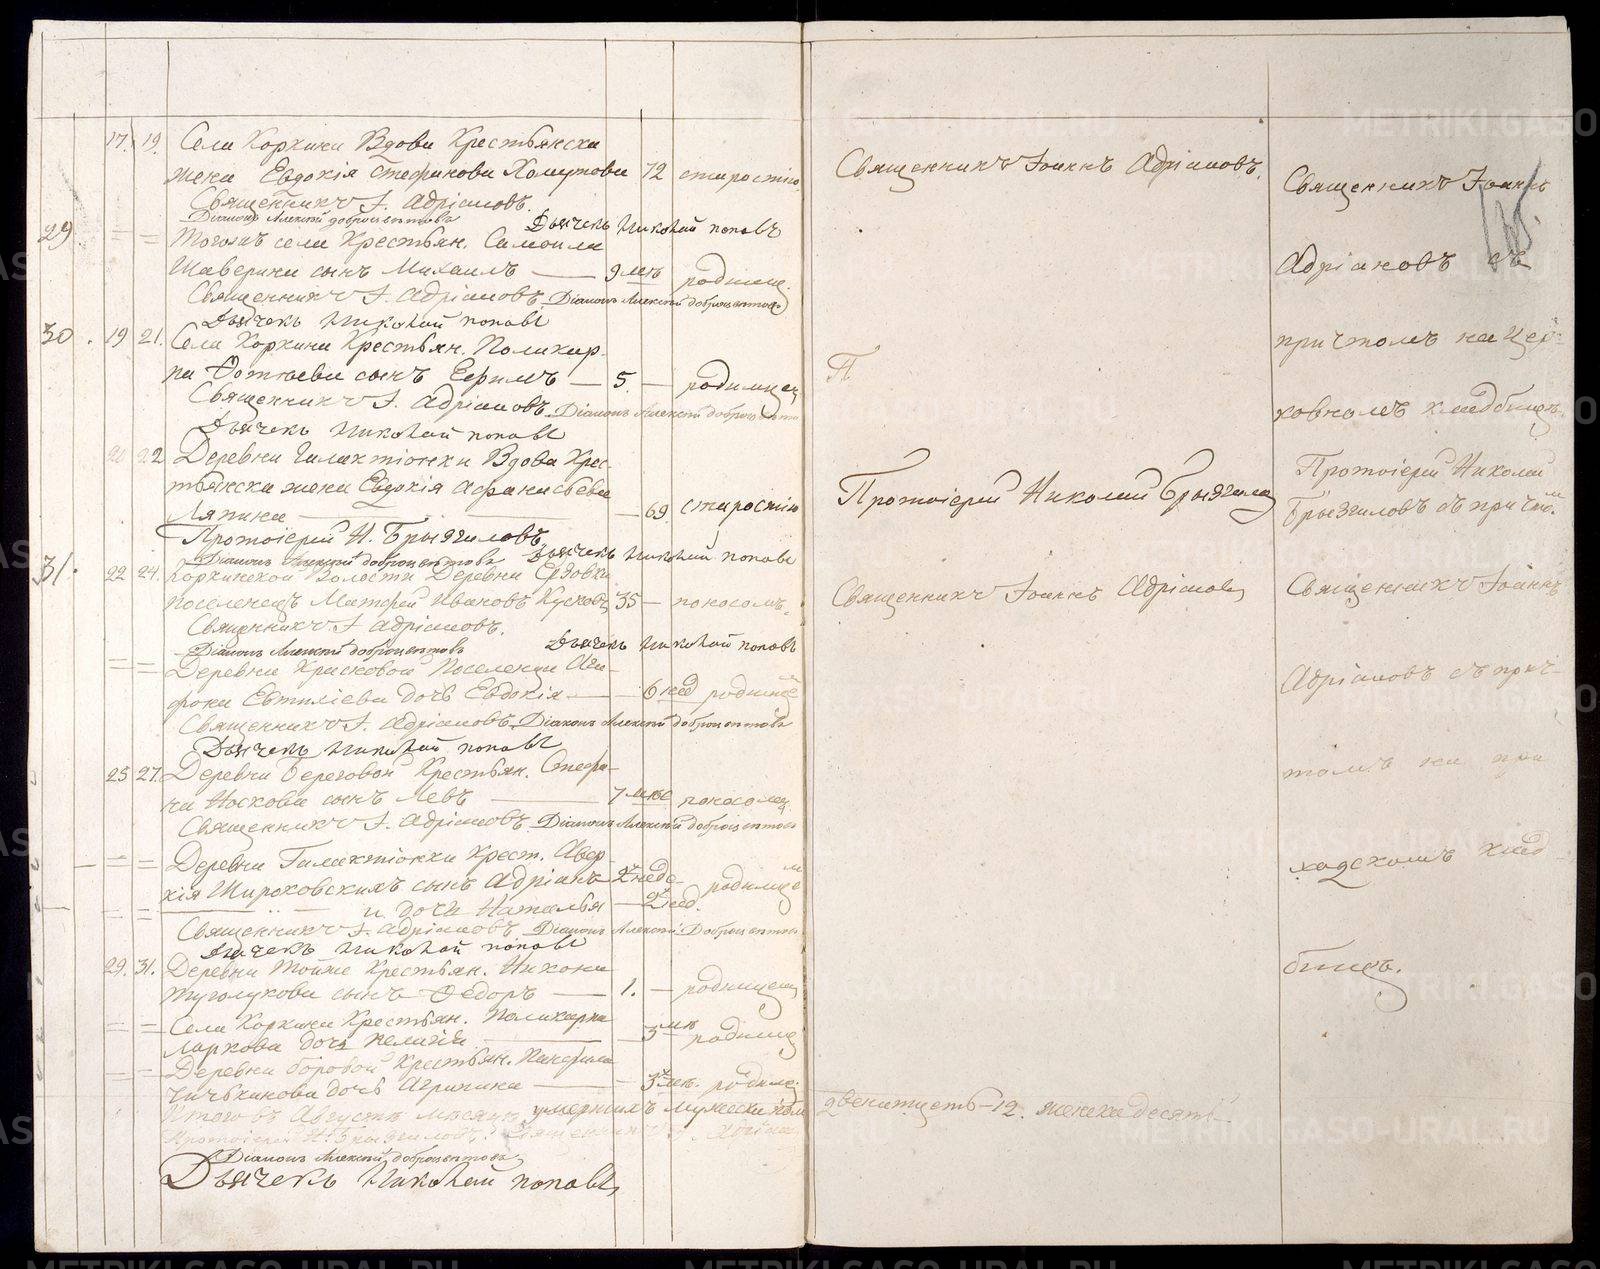 17. 19. Села Коркина Вдова Крестьянска
жена Евдокія Стефанова Хомутова 72 старостію
Священникъ І. Адріановъ.
Діаконъ Алексѣй Доброцвѣтовъ Дьячекъ Николай Поповъ
29. = = Тогожъ села Крестьян. Самоила
Шаверина сынъ Михаилъ — 9 мѣ родимц.
Священникъ І. Адріановъ. Діаконъ Алексѣй Доброцвѣтовъ
Дьячекъ Николай Поповъ
30. 19 21. Села Коркина Крестьян. Поликар-
па сынъ Ефимъ — 5 — родимцемъ
Священникъ І. Адріановъ. Діаконъ Алексѣй Доброцвѣтовъ
Дьячекъ Николай Поповъ
20 22 Деревни Галактіонки Вдова Крес-
тьянска жена Евдокія Афанасьева
Ляпина — 69 старостію
Протоіерей Н. Брызгаловъ.
Діаконъ Алексѣй Доброцвѣтовъ Дьячекъ Николай Поповъ
31. 22 24. Коркинской Волости Деревни Ерзовки
поселенецъ Матфей Ивановъ 35 — поносомъ.
Священникъ І. Адріановъ.
Діаконъ Алексѣй Доброцвѣтовъ Дьячекъ Николай Поповъ
= = Деревни Красновой Поселенца
дочь Евдокія — 6 нед родимцемъ
Священникъ І. Адріановъ. Діаконъ Алексѣй Доброцвѣтовъ
Дьячекъ Николай Поповъ
25 27. Деревни Береговой Крестьян. Стефа-
на Носкова сынъ Левъ — 7 мѣс поносомъ
Священникъ І. Адріановъ. Діаконъ Алексѣй Доброцвѣтовъ
= = Деревни Галактіонки Крест. Авер-
кія Широковскихъ сынъ Адріанъ 2 неде- родимце
= = и дочь Наталья — 2 нед.
Священникъ І. Адріановъ Діаконъ Алексѣй Доброцвѣтовъ
Дьячекъ Николай Поповъ
29. 31. Деревни Тойже Крестьян. Никона
Туголукова сынъ Ѳедоръ — 1. — родимцемъ
= = Села Коркина Крестьян. Поликарпа
Ларкова дочь Пелагія — 3 мѣ родимц
= = Деревни Боровой Крестьян. Панфила
дочь Агрипина — 3 мѣ. родимц
Итого въ Августѣ Мѣсяцѣ умершихъ мужеска пола
Протоіерей Н. Брызгаловъ. Священникъ І. Адріановъ
Діаконъ Алексѣй Доброцвѣтовъ
Дьячекъ Николай Поповъ
Священникъ Іоаннъ Адріановъ.
П
Протоіерей Николай Брызгаловъ
Священникъ Іоаннъ Адріановъ
двенатцеть — 12. женска десять
Священникъ Іоаннъ
Адріановъ съ
причтомъ на цер-
ковномъ кладбищѣ.
Протоіерей Николай
Брызгаловъ съ причтом.
Священникъ Іоаннъ
Адріановъ съ прич-
томъ на при
ходскомъ клад
бищѣ.
METRIKI.GASO-URAL.RU